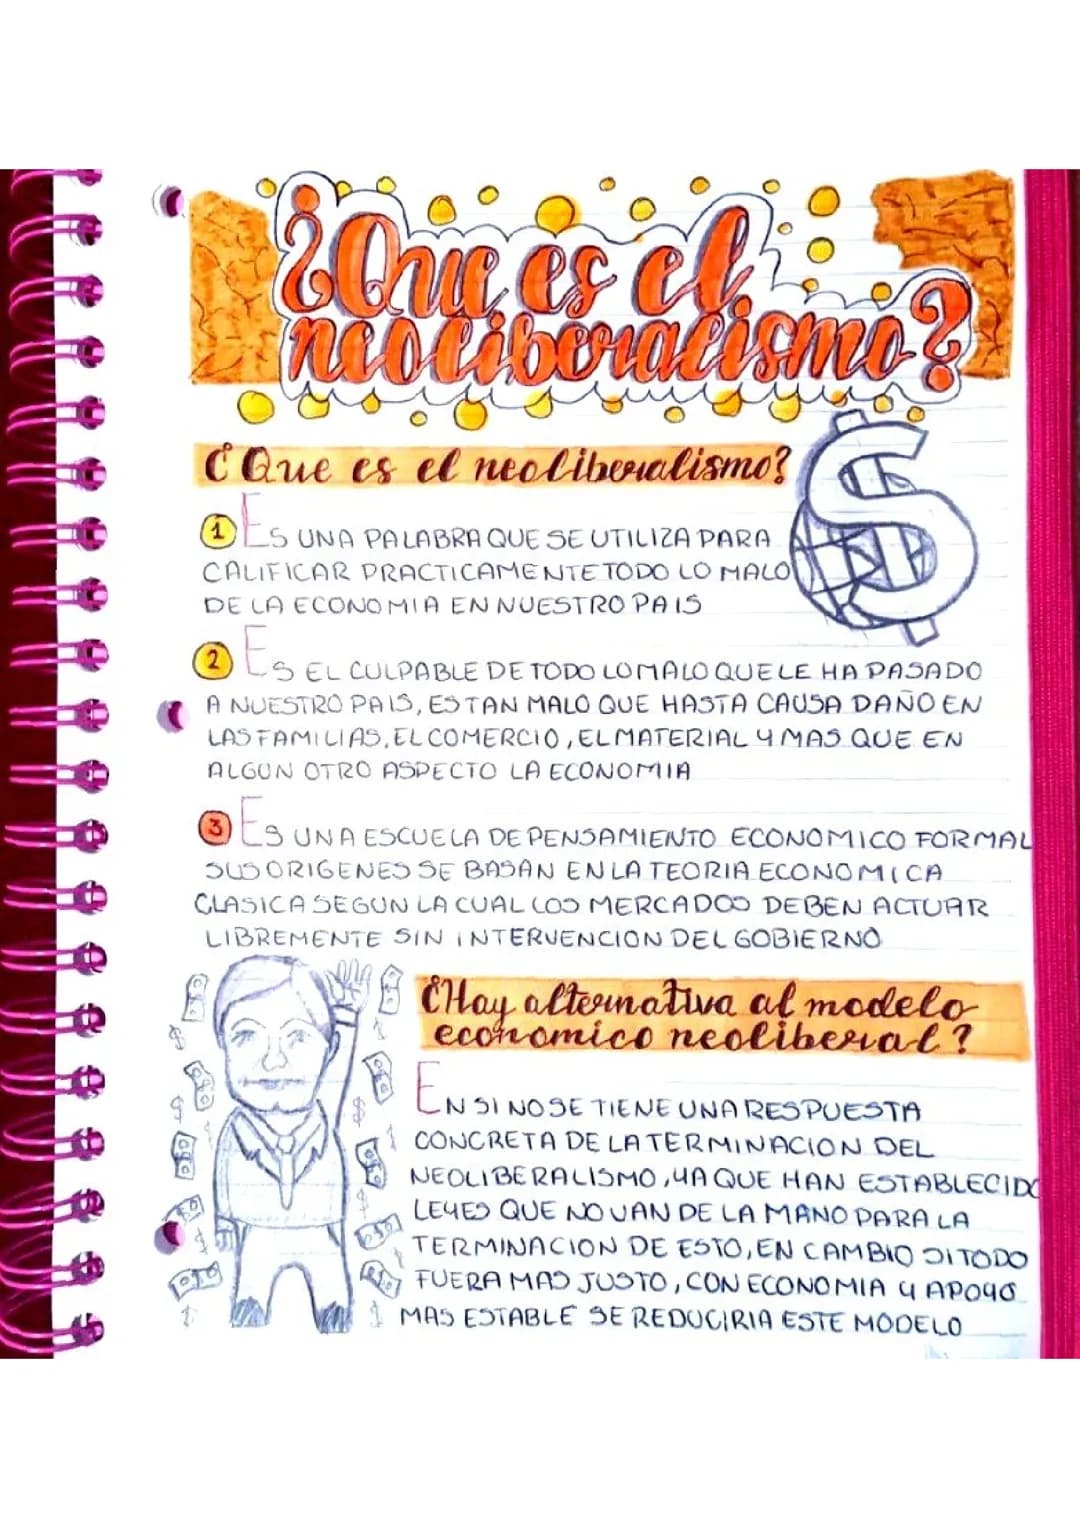 ¿Que es el
neoliberalismo?
¿Que es el neoliberalismo?
1 ES UNA PALABRA QUE SE UTILIZA PARA
CALIFICAR PRACTICAMENTE TODO LO MALO
DE LA ECONOMIA EN NUESTRO PAIS
2 ES EL CULPABLE DE TODO LO MALO QUE LE HA PASADO
A NUESTRO PAIS, ES TAN MALO QUE HASTA CAUSA DAÑO EN
LAS FAMILIAS, EL COMERCIO, EL MATERIAL Y MAS QUE EN
ALGUN OTRO ASPECTO LA ECONOMIA
3 ES UNA ESCUELA DE PENSAMIENTO ECONOMICO FORMAL
SUS ORIGENES SE BASAN EN LA TEORIA ECONOMICA
CLASICA SEGUN LA CUAL LOS MERCADOS DEBEN ACTUAR
LIBREMENTE SIN INTERVENCION DEL GOBIERNO
¿Hay alternativa al modelo
economico neoliberal?
EN SI NO SE TIENE UNA RESPUESTA
CONCRETA DE LA TERMINACION DEL
NEOLIBERALISMO, YA QUE HAN ESTABLECIDO
LEYES QUE NO VAN DE LA MANO PARA LA
TERMINACION DE ESTO, EN CAMBIO SI TODO
FUERA MAS JUSTO, CON ECONOMIA Y APOYOS
MAS ESTABLE SE REDUCIRIA ESTE MODELO